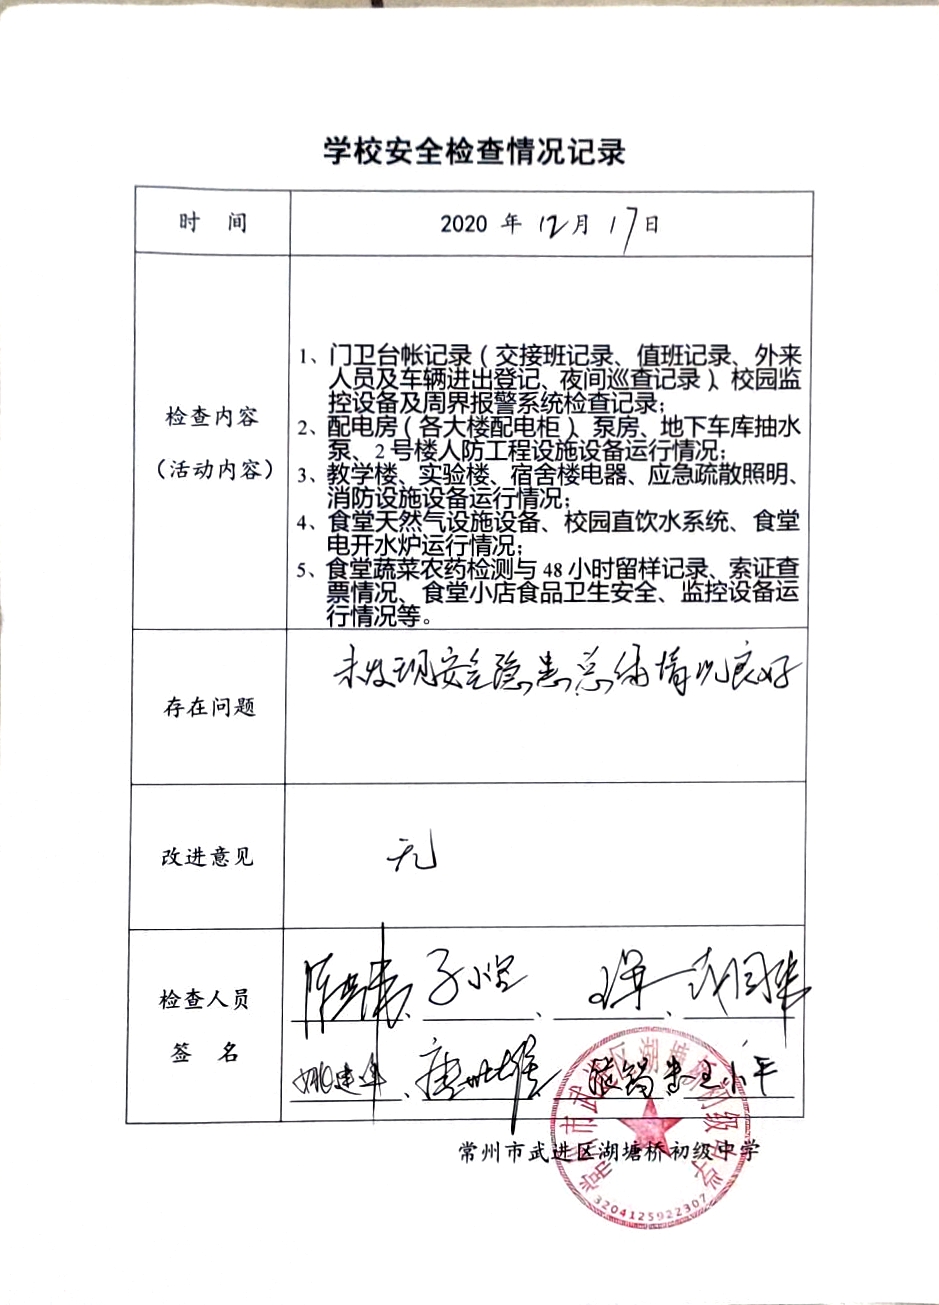 学校安全检查情况记录
时 间
2020 年 12月 17日
检查内容
(活动内容)
1、门卫台帐记录(交接班记录、值班记录、外来
人员及车辆进出登记、夜间巡查记录)、校园监
控设备及周界报警系统检查记录;
2、配电房(各大楼配电柜)、泵房、地下车库抽水
泵、2号楼人防工程设施设备运行情况;
3、教学楼、实验楼、宿舍楼电器、应急疏散照明、
消防设施设备运行情况;
4、食堂天然气设施设备、校园直饮水系统、食堂
电开水炉运行情况;
5、食堂蔬菜农药检测与 48 小时留样记录、索证查
票情况、食堂小店食品卫生安全、监控设备运
行情况等。
存在问题
未发现安全隐患总体情况良好
改进意见
无
检查人员
签 名
姚建平
王小平
常州市武进区湖塘桥初级中学
常州市武进区湖塘桥初级中学
3204125922307